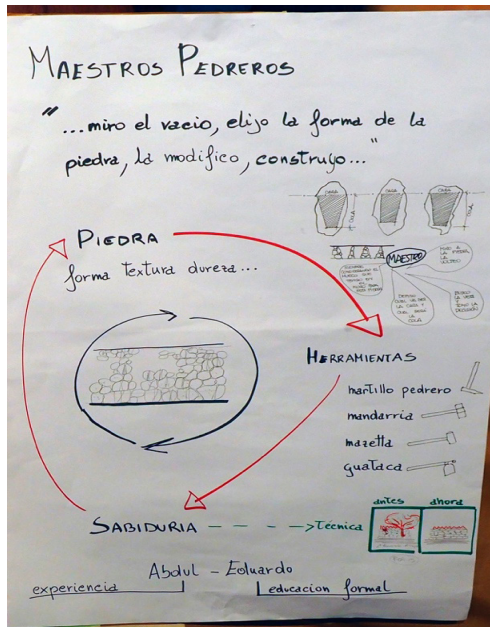 MAESTROS PEDREROS
"...miro el vacio, elijo la forma de la
piedra, la modifico, construyo..."
CARA
CARA
CARA
COLA
COLA
PIEDRA
forma textura dureza...
MAESTRO
HERRAMIENTAS
martillo pedrero
mandarria
mazetta
guataca
SABIDURIA - - - -> Técnica
antes
ahora
Abdul - Eduardo
experiencia
educacion formal